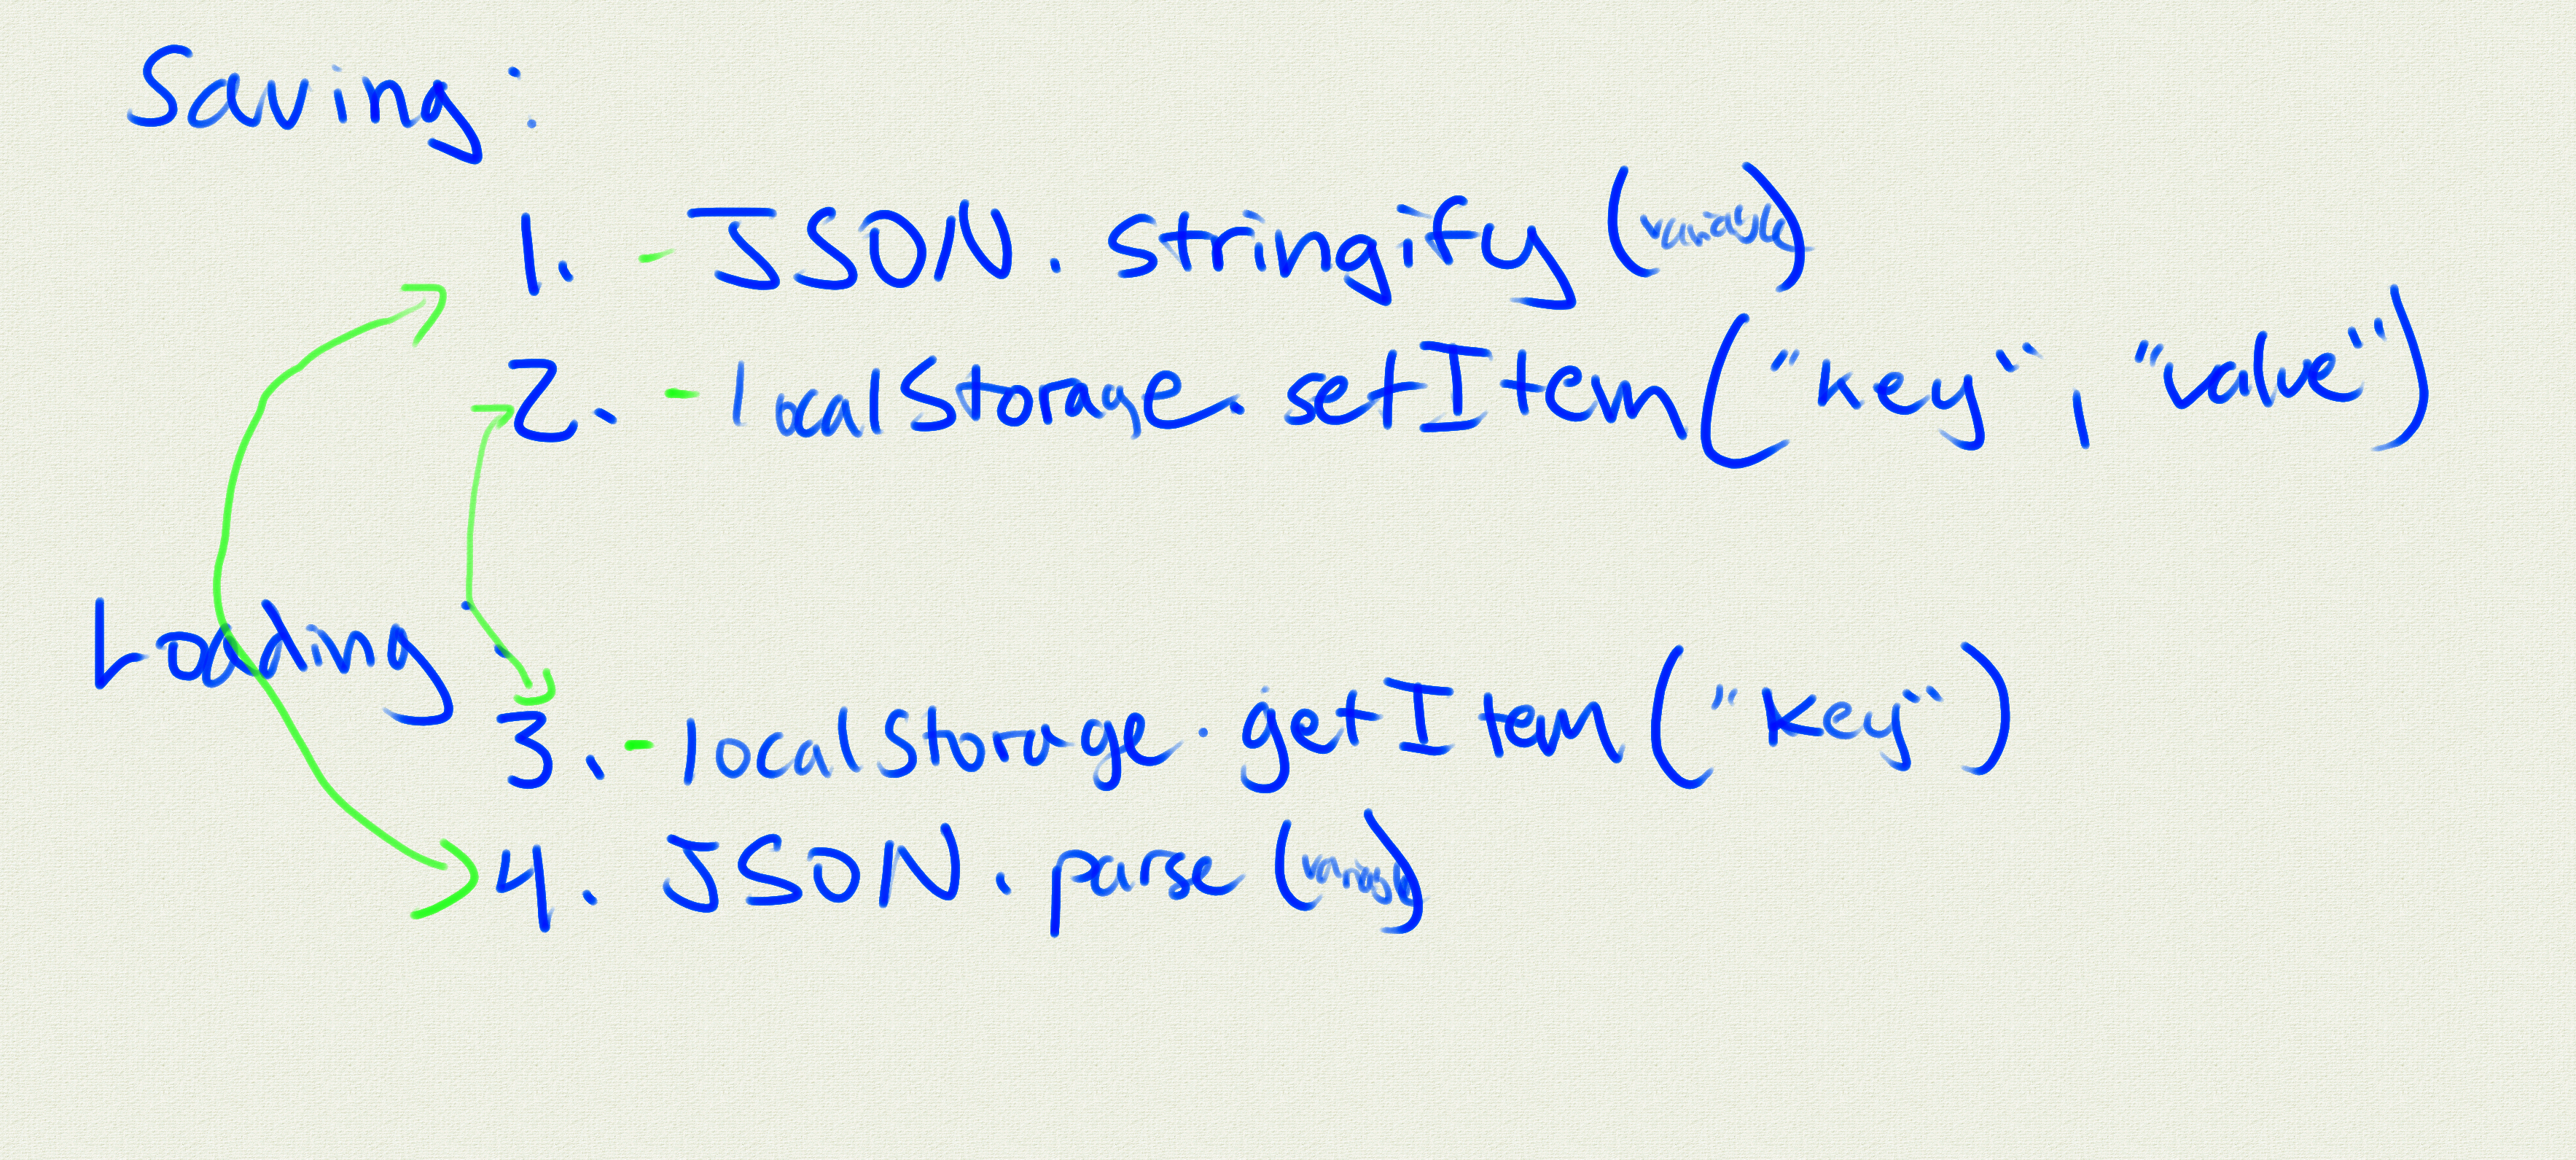 Saving:
1. - JSON.stringify(variable)
2. - localStorage.setItem("key", "value")
Loading:
3. - localStorage.getItem("key")
4. JSON.parse(variable)